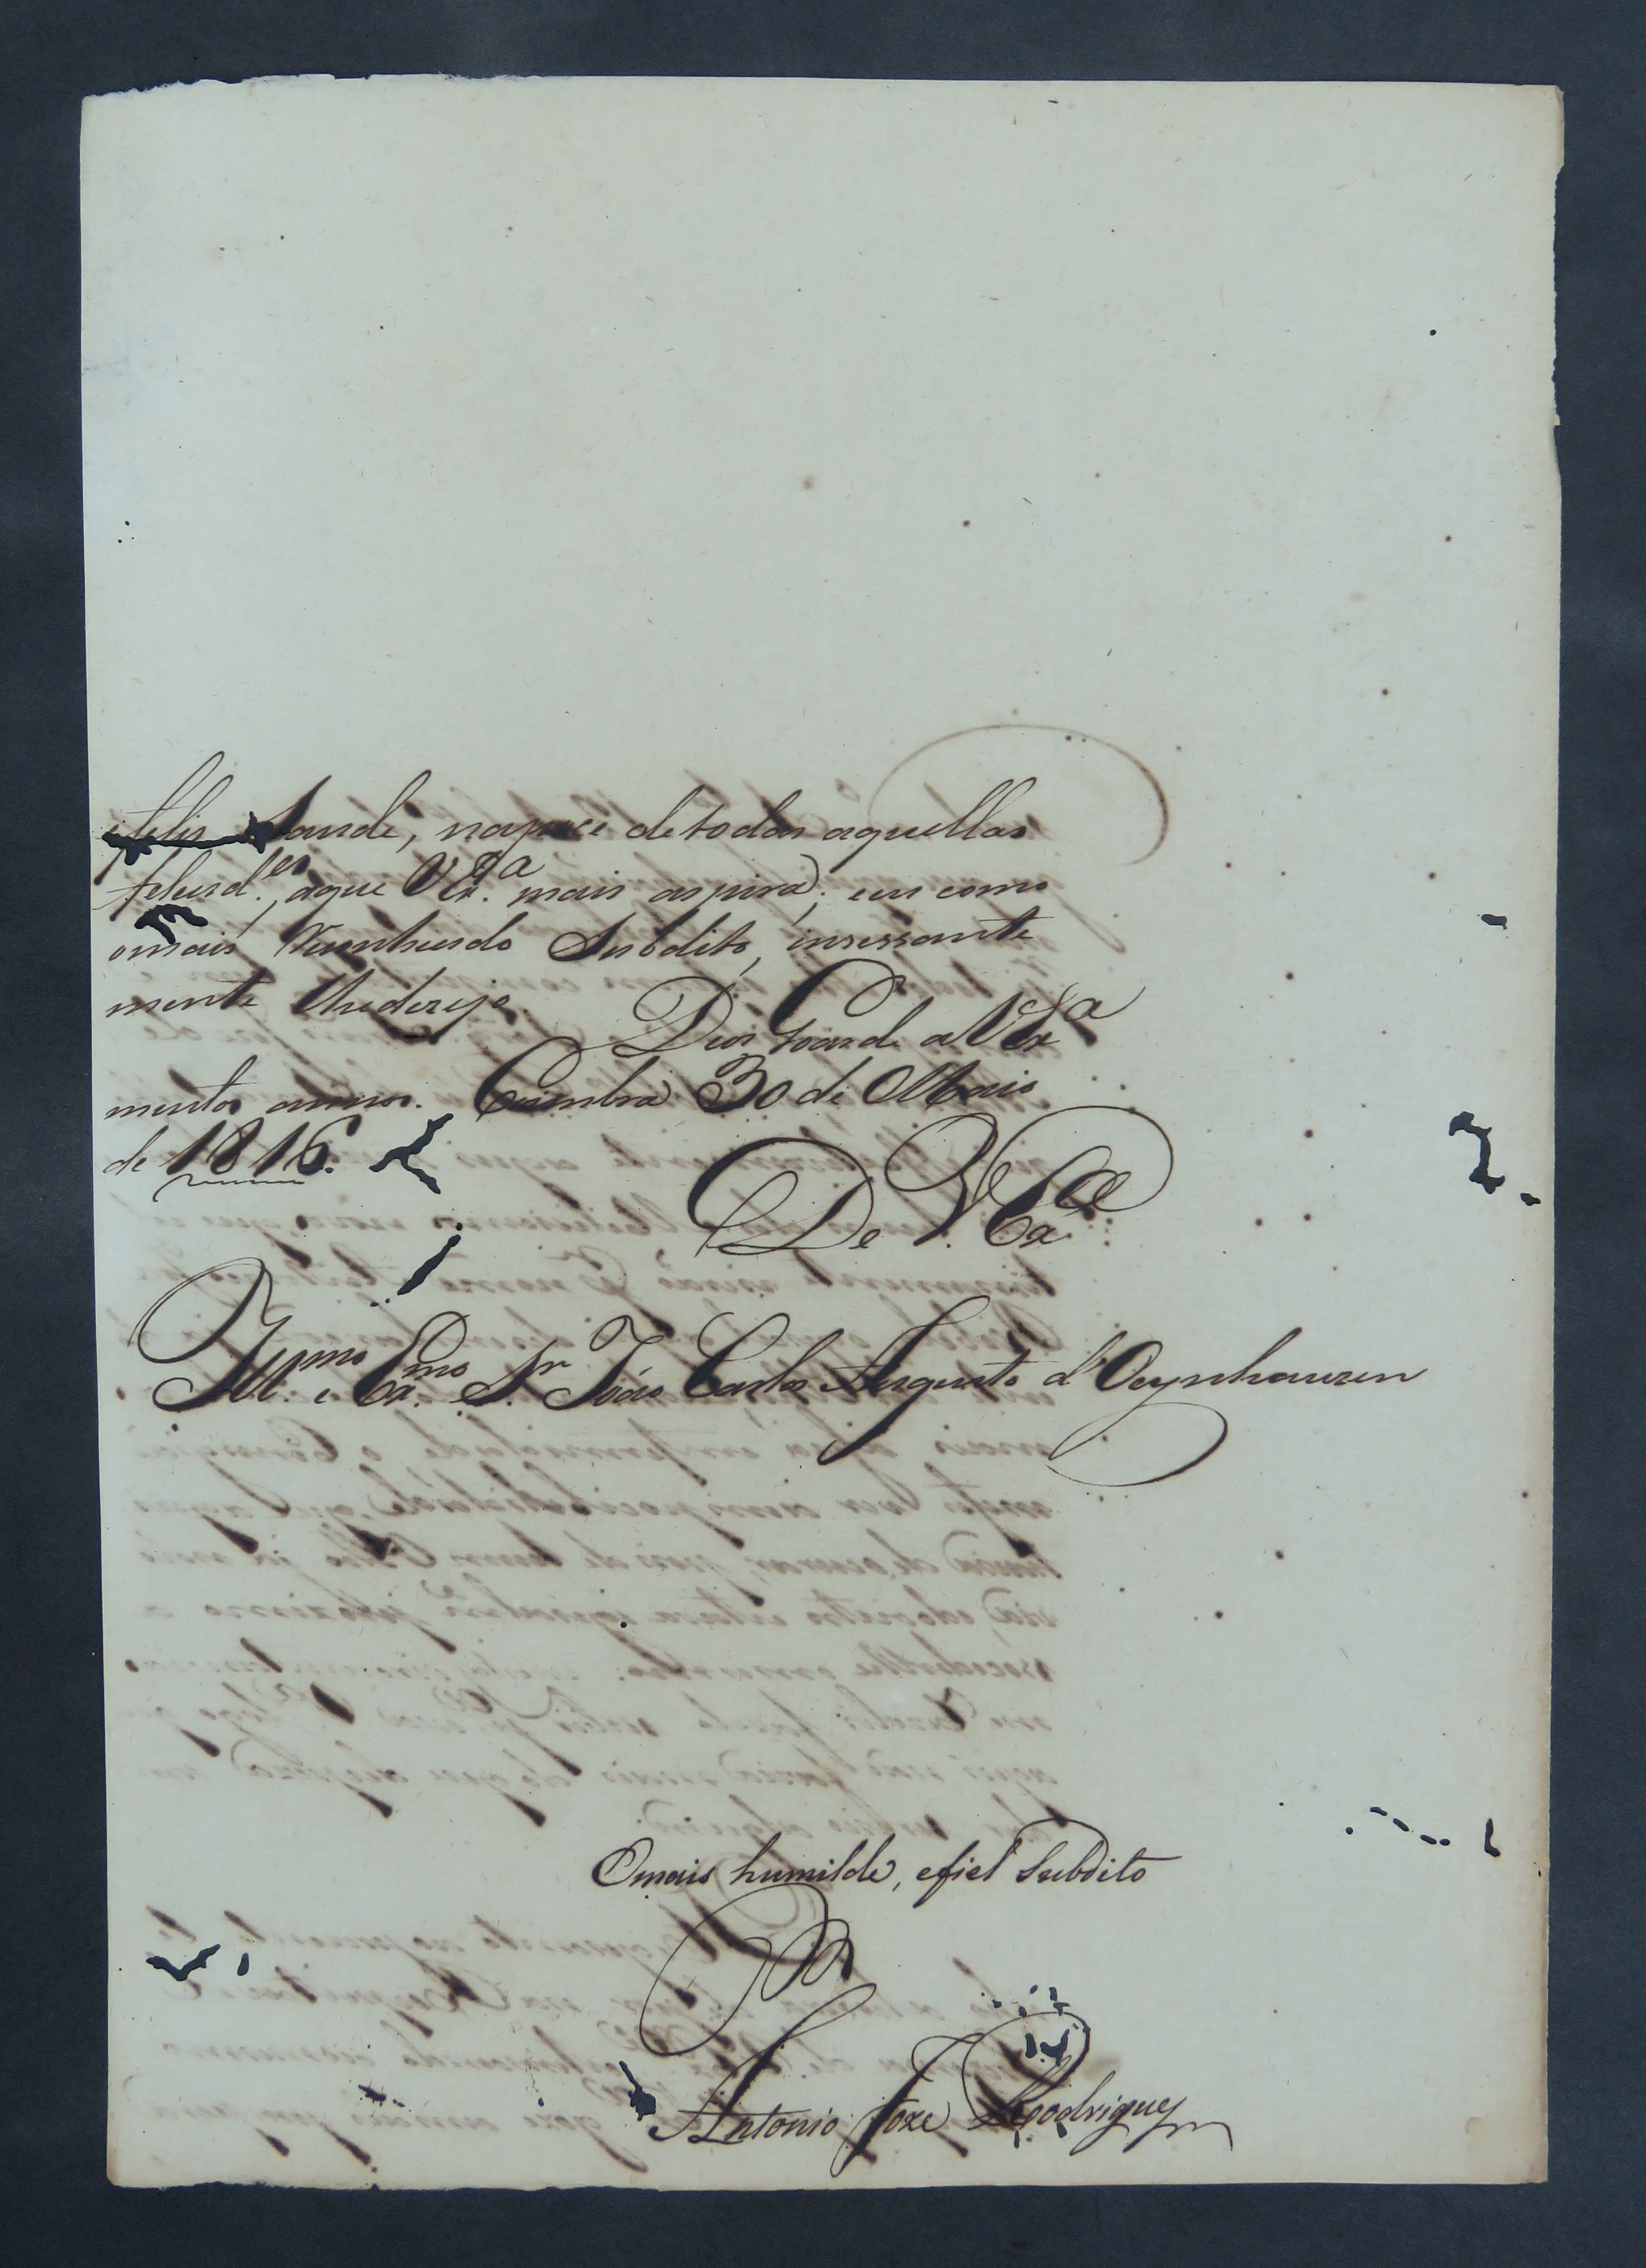 felis Saude, naposse detodas aquellas
felecid.es, aque VEx.a mais aspira; eu como
omais Reconhecido Subdito, insessante
mente lhedezejo. Deos Goarde a VEx.a
muitos annos. Coimbra 30 de Maio
de 1816.
De V. Ex.a
Ill.mo e Ex.mo S.r João Carlos Augusto d'Oeynhausen
Omais humilde, efiel Subdito
Antonio Joze Rodrigues